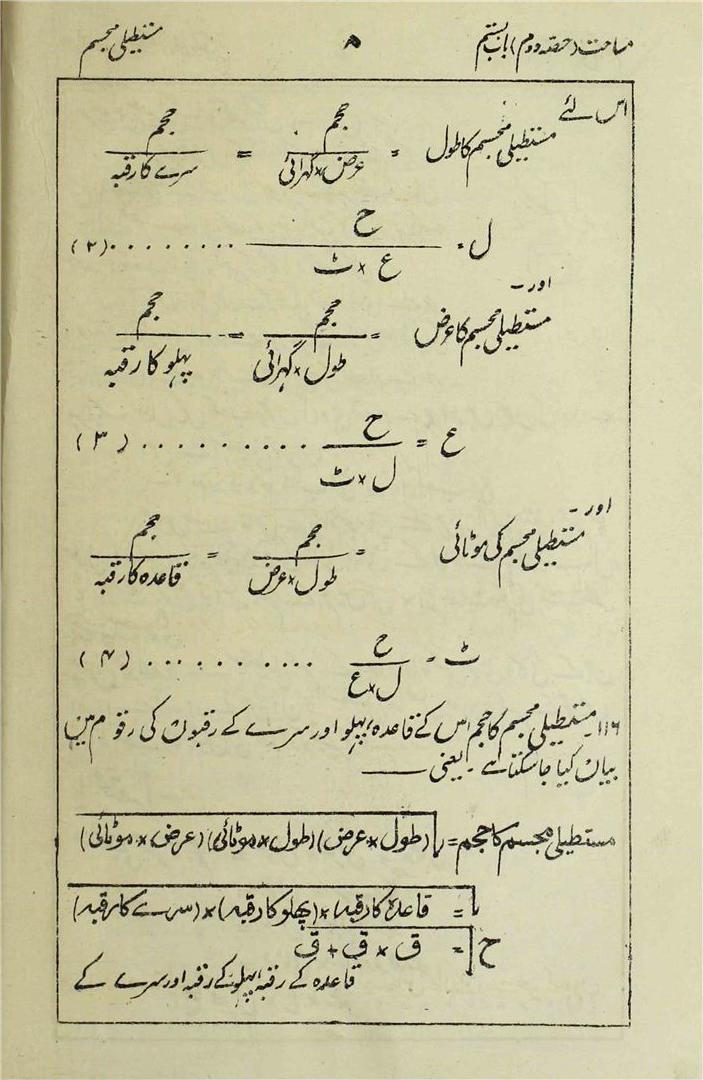 مساحت (حصہ دوم) باب بستم ۸ مستطیلی مجسم
اس لئے
مستطیلی مجسم کا طول = حجم / عرض × گہرائی = حجم / سرے کا رقبہ
ل = ح / ع × ٹ ......... (۲)
اور ۔
مستطیلی مجسم کا عرض = حجم / طول × گہرائی = حجم / پہلو کا رقبہ
ع = ح / ل × ٹ .......... (۳)
اور ۔
مستطیلی مجسم کی موٹائی = حجم / طول × عرض = حجم / قاعدہ کا رقبہ
ٹ = ح / ل × ع .......... (۴)
۱۱۶۔ مستطیلی مجسم کا حجم اس کے قاعدہ، پہلو اور سرے کے رقبوں کی رقوم میں
بیان کیا جاسکتا ہے ۔ یعنی ——
مستطیلی مجسم کا حجم = √(طول × عرض) (طول × موٹائی) (عرض × موٹائی)
= √(قاعدہ کا رقبہ) × (پہلو کا رقبہ) × (سرے کا رقبہ)
ح = √ق × ق + ق
قاعدہ کے رقبہ، پہلو کے رقبہ اور سرے کے